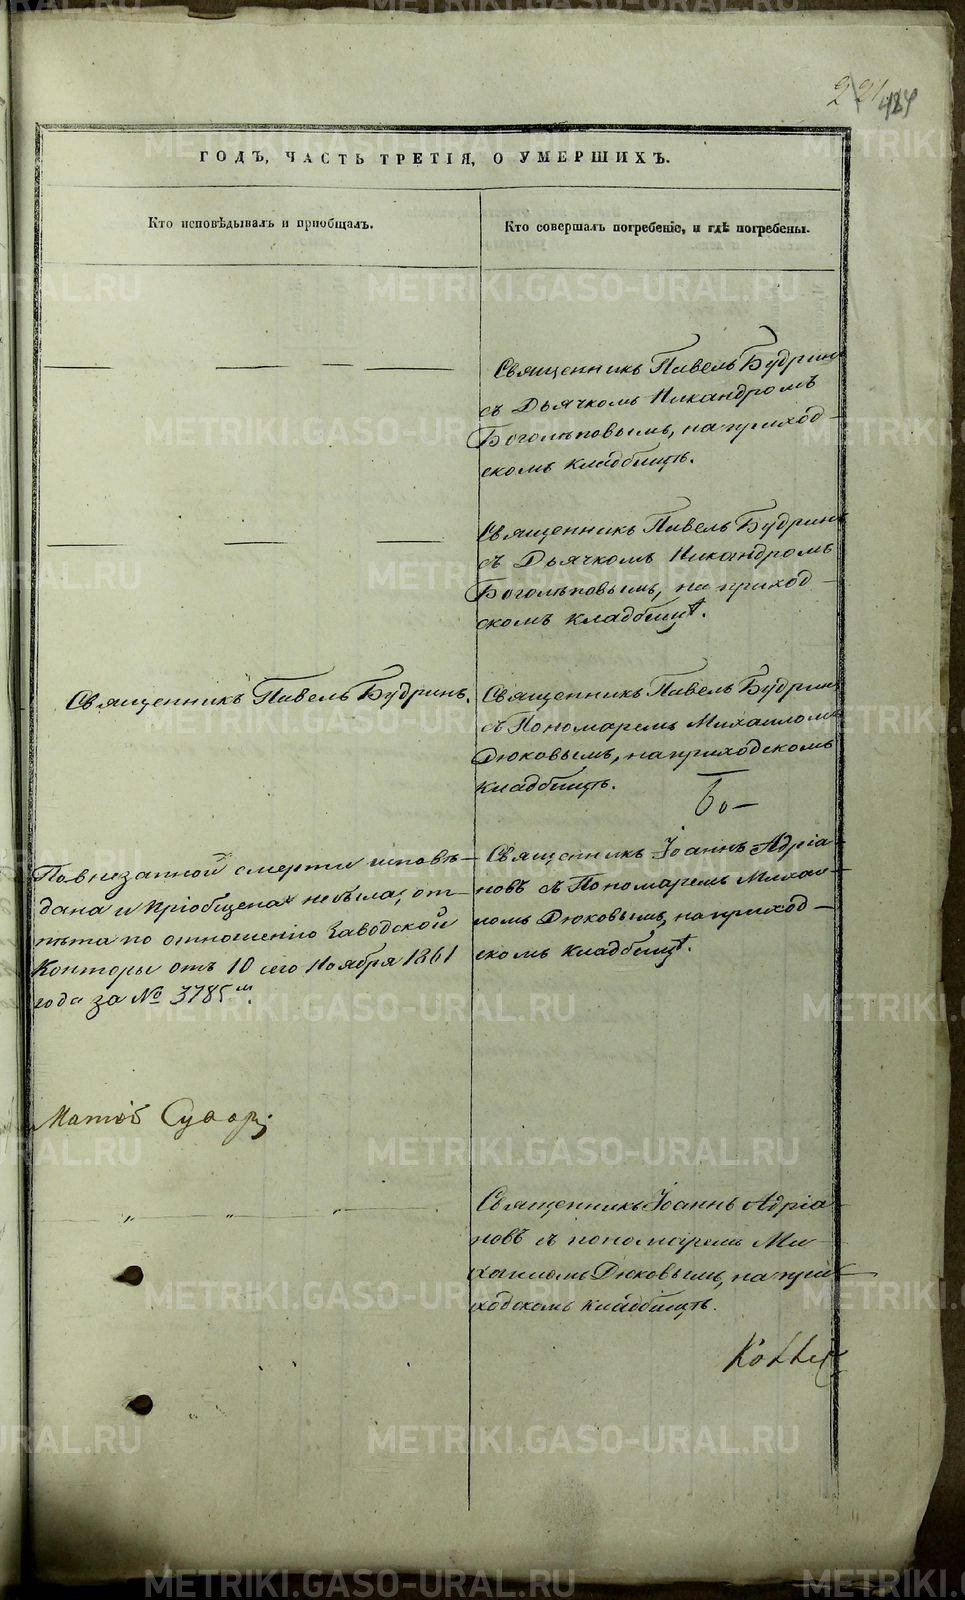 221
484
ГОДЪ, ЧАСТЬ ТРЕТІЯ, О УМЕРШИХЪ.
Кто исповѣдывалъ и пріобщалъ.
Кто совершалъ погребеніе, и гдѣ погребены.
Священникъ Павелъ Будринъ
съ Дьячкомъ Никандромъ
Боголѣповымъ, на приход-
скомъ кладбищѣ.
Священникъ Павелъ Будринъ
съ Дьячкомъ Никандромъ
Боголѣповымъ, на приход-
скомъ кладбищѣ.
Священникъ Павелъ Будринъ.
Священникъ Павелъ Будринъ
съ Пономаремъ Михаиломъ
Дюковымъ, на приходскомъ
кладбищѣ.
По внезапной смерти исповѣ-
дана и пріобщена не была; от-
пѣта по отношенію Заводской
Конторы отъ 10 сего Ноября 1861
года за № 3785м.
Священникъ Іоаннъ Адріа-
новъ съ Пономаремъ Михаи-
ломъ Дюковымъ, на приход-
скомъ кладбищѣ.
Священникъ Іоаннъ Адріа-
новъ съ пономаремъ Ми-
хаиломъ Дюковымъ, на при-
ходскомъ кладбищѣ.
METRIKI.GASO-URAL.RU